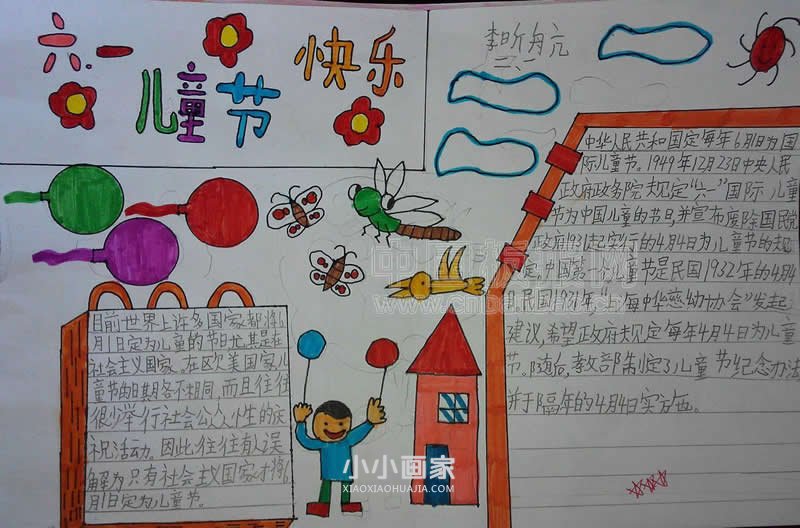 六·一
儿童节
快乐
李昕舟亢
二、1
中华人民共和国定每年6月1日为国
际儿童节。1949年12月23日中央人民
政府政务院规定“六一”国际儿童
节为中国儿童的节日,并宣布废除国民党
政府1931起实行的4月4日为儿童节的规
定,中国第一个儿童节是民国1932年的4月4
日,民国1931年,“上海中华慈幼协会”发起
建议,希望政府规定每年4月4日为儿童
节。随后,教部制定了儿童节纪念办法
并于隔年的4月4日实施。
目前世界上许多国家都将6
月1日定为儿童的节日尤其是在
社会主义国家。在欧美国家儿
童节的日期各不相同,而且往往
很少举行社会公众性的庆
祝活动。因此往往有人误
解为只有社会主义国家才将6
月1日定为儿童节。
小小画家
XIAOXIAOHUAJIA.COM